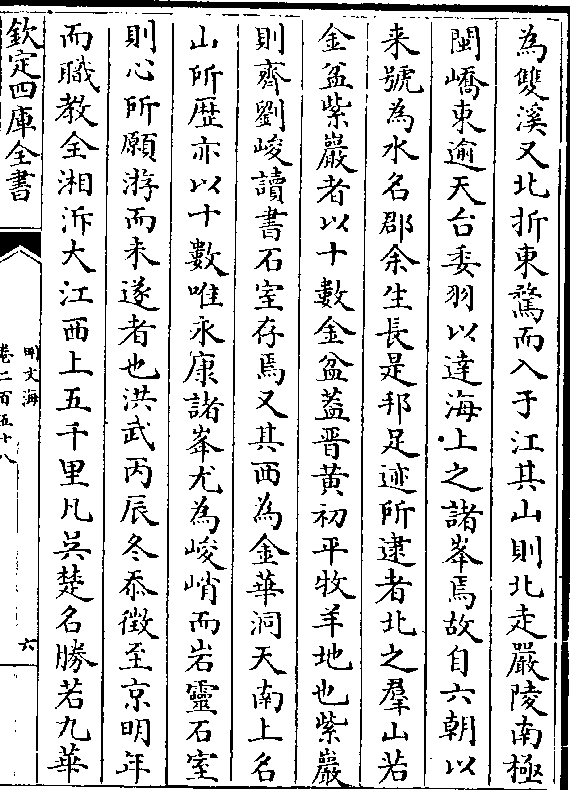 為雙溪又北折東騖而入于江其山則北走嚴陵南極
閩嶠東逾天台委羽以達海上之諸峯焉故自六朝以
来號為水名郡余生長是邦足迹所逮者北之羣山若
金盆紫巖者以十數金盆蓋晋黄初平牧羊地也紫巖
則齊劉峻讀書石室存焉又其西為金華洞天南上名
山所歴亦以十數唯永康諸峯尤為峻峭而岩靈石室
則心所願游而未遂者也洪武丙辰冬忝徴至京明年
而職教全湘泝大江西上五千里凡吳楚名勝若九華
欽定四庫全書
明文海
卷二百五十八
六